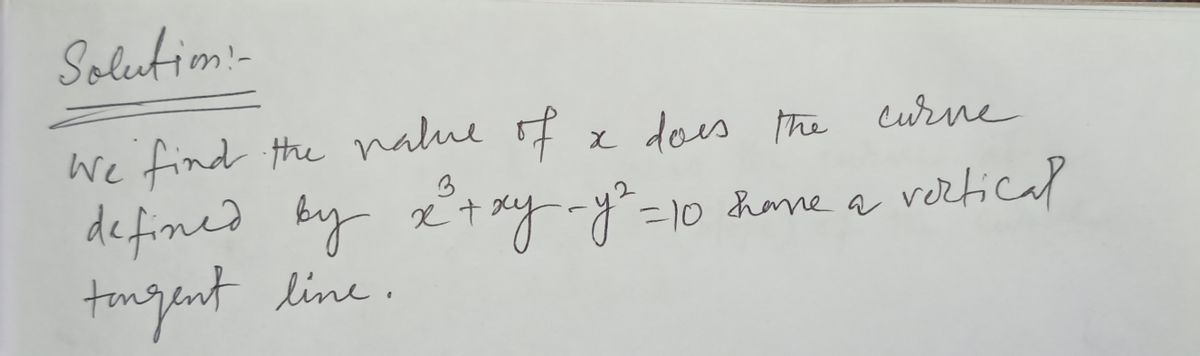 Solution:-
We find the value of x does the curve
defined by x³+xy-y²=10 have a vertical
tangent line.